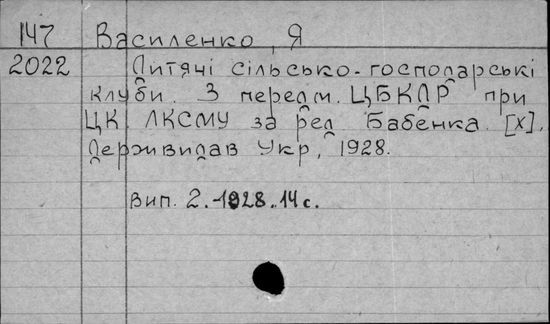 147 Василенко, Я
2022 Дитячі сільсько-господарські
клуби. З передм. ЦБКДР при
ЦК ЛКСМУ за ред Бабенка. [Х].
Держвидав Укр, 1928.
Вип. 2.-1928. 14 с.